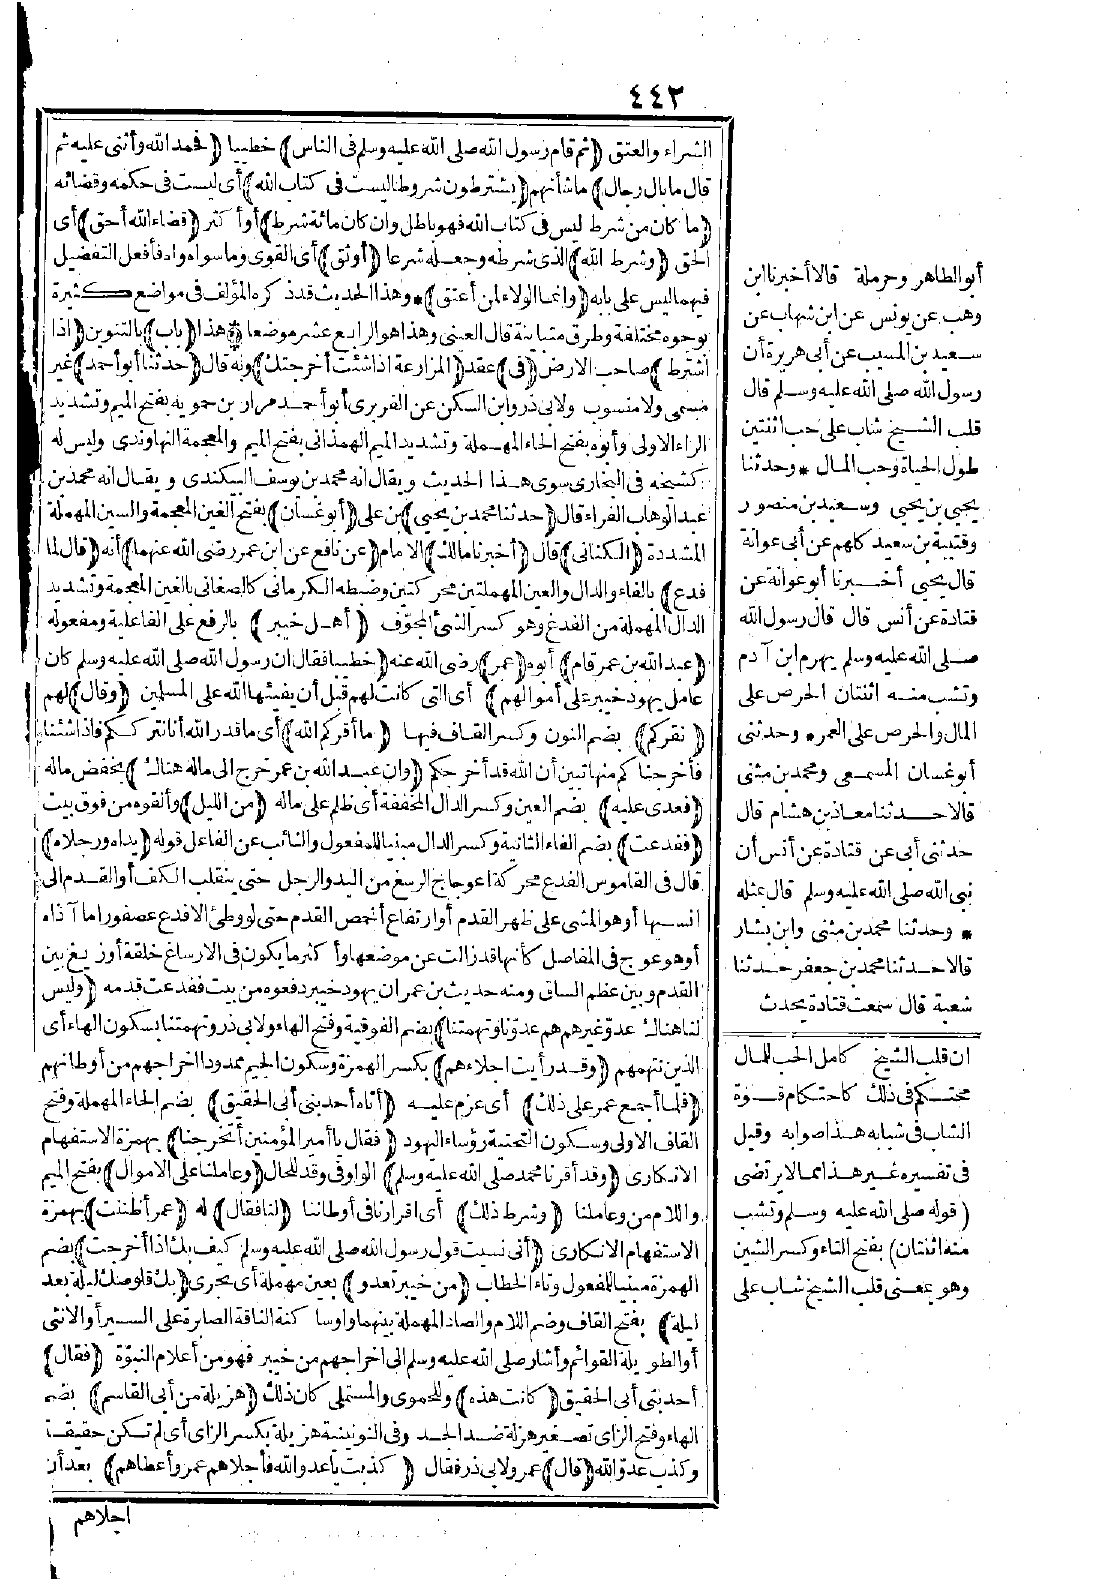 ٤٤٢
الشراء والعتق (ثم قام رسول الله صلى الله عليه وسلم فى الناس) خطيبا (فحمد الله وأثنى عليه ثم
قال ما بال رجال) ما شأنهم (يشترطون شروطا ليست فى كتاب الله) أى ليست فى حكمه وقضائه
(ما كان من شرط ليس فى كتاب الله فهو باطل وان كان مائة شرط) أو أكثر (قضاء الله أحق) أى
الحق (وشرط الله) الذى شرطه وجعله شرعا (أوثق) أى القوى وما سواه واه فأفعل التفضيل
فيهما ليس على بابه (وانما الولاء لمن أعتق) * وهذا الحديث قد ذكره المؤلف فى مواضع كثيرة
بوجوه مختلفة وطرق متباينة قال العينى وهذا هو الرابع عشر موضعا * هذا (باب) بالتنوين (اذا
اشترط) صاحب الارض (فى) عقد (المزارعة اذا شئت أخرجتك) وبه قال (حدثنا أبو أحمد) غير
مسمى ولا منسوب ولابى ذر وابن السكن عن الفربرى أبو أحمد مرار بن حمويه بفتح الميم وتشديد
الراء الاولى وأبوه بفتح الحاء المهملة وتشديد الميم الهمذانى بفتح الميم والمعجمة النهاوندى وليس له
كشيخه فى البخارى سوى هذا الحديث ويقال انه محمد بن يوسف البيكندى ويقال انه محمد بن
عبد الوهاب الفراء قال (حدثنا محمد بن يحيى) بن على (أبو غسان) بفتح الغين المعجمة والسين المهملة
المشددة (الكنانى) قال (أخبرنا مالك) الامام (عن نافع عن ابن عمر رضى الله عنهما) أنه (قال لما
فدع) بالفاء والدال والعين المهملتين محركتين وضبطه الكرمانى كالصغانى بالغين المعجمة وتشديد
الدال المهملة من الفدغ وهو كسر الشئ المجوّف (أهل خيبر) بالرفع على الفاعلية ومفعوله
(عبد الله بن عمر قام) أبوه (عمر) رضى الله عنه (خطيبا فقال ان رسول الله صلى الله عليه وسلم كان
عامل يهود خيبر على أموالهم) أى التى كانت لهم قبل أن يفيئها الله على المسلمين (وقال) لهم
(نقركم) بضم النون وكسر القاف فيها (ما أقركم الله) أى ما قدر الله أنا نترككم فاذا شئنا
فأخرجناكم منها تبين أن الله قد أخرجكم (وان عبد الله بن عمر خرج الى ماله هناك) بخفض ماله
(فعدى عليه) بضم العين وكسر الدال المخففة أى ظلم على ماله (من الليل) وألقوه من فوق بيت
(ففدعت) بضم الفاء الثانية وكسر الدال مبنيا للمفعول والنائب عن الفاعل قوله (يداه ورجلاه)
قال فى القاموس الفدع محركة اعوجاج الرسغ من اليد والرجل حتى ينقلب الكف أو القدم الى
انسيها أو هو المشى على ظهر القدم أو ارتفاع أخمص القدم حتى لو وطئ الافدع عصفورا ما آذاه
أو هو عوج فى المفاصل كأنها قد زالت عن موضعها وأكثر ما يكون فى الارساغ خلقة أو زيغ بين
القدم وبين عظم الساق ومنه حديث بن عمر ان يهود خيبر دفعوه من بيت ففدعت قدمه (وليس
لنا هناك عدوّ غيرهم هم عدوّنا وتهمتنا) بضم الفوقية وفتح الهاء ولابى ذر وتهمتنا بسكون الهاء أى
الذين نتهمهم (وقد رأيت اجلاءهم) بكسر الهمزة وسكون الجيم ممدودا اخراجهم من أوطانهم
(فلما أجمع عمر على ذلك) أى عزم عليه (أتاه أحد بنى أبى الحقيق) بضم الحاء المهملة وفتح
القاف الاولى وسكون التحتية رؤساء اليهود (فقال يا أمير المؤمنين أتخرجنا) بهمزة الاستفهام
الانكارى (وقد أقرنا محمد صلى الله عليه وسلم) الواو فى وقد للحال (وعاملنا على الاموال) بفتح الميم
واللام من وعاملنا (وشرط ذلك) أى اقرارنا فى أوطاننا (لنا فقال) له (عمر أظننت) بهمزة
الاستفهام الانكارى (أنى نسيت قول رسول الله صلى الله عليه وسلم كيف بك اذا أخرجت) بضم
الهمزة مبنيا للمفعول وتاء الخطاب (من خيبر تعدو) بعين مهملة أى يجرى (بك قلوصك ليلة بعد
ليلة) بفتح القاف وضم اللام والصاد المهملة بينهما واو ساكنة الناقة الصابرة على السير أو الانثى
أو الطويلة القوائم وأشار صلى الله عليه وسلم الى اخراجهم من خيبر فهو من أعلام النبوّة (فقال)
أحد بنى أبى الحقيق (كانت هذه) وللحموى والمستملى كان ذلك (هزيلة من أبى القاسم) بضم
الهاء وفتح الزاى تصغير هزلة ضد الجد وفى اليونينية هزيلة بكسر الزاى أى لم تكن حقيقة
وكذب عدوّ الله (قال) عمر ولابى ذر فقال (كذبت يا عدو الله فأجلاهم عمر وأعطاهم) بعد أن
اجلاهم
أبو الطاهر وحرملة قالا أخبرنا ابن
وهب عن يونس عن ابن شهاب عن
سعيد بن المسيب عن أبى هريرة أن
رسول الله صلى الله عليه وسلم قال
قلب الشيخ شاب على حب اثنتين
طول الحياة وحب المال * وحدثنا
يحيى بن يحيى وسعيد بن منصور
وقتيبة بن سعيد كلهم عن أبى عوانة
قال يحيى أخبرنا أبو عوانة عن
قتادة عن أنس قال قال رسول الله
صلى الله عليه وسلم يهرم ابن آدم
وتشب منه اثنتان الحرص على
المال والحرص على العمر * وحدثنى
أبو غسان المسمعى ومحمد بن مثنى
قالا حدثنا معاذ بن هشام قال
حدثنى أبى عن قتادة عن أنس أن
نبى الله صلى الله عليه وسلم قال بمثله
* وحدثنا محمد بن مثنى وابن بشار
قالا حدثنا محمد بن جعفر حدثنا
شعبة قال سمعت قتادة يحدث
ان قلب الشيخ كامل الحب للمال
محتكم فى ذلك كاحتكام قوة
الشاب فى شبابه هذا صوابه وقيل
فى تفسيره غير هذا مما لا يرتضى
(قوله صلى الله عليه وسلم وتشب
منه اثنتان) بفتح التاء وكسر الشين
وهو بمعنى قلب الشيخ شاب على